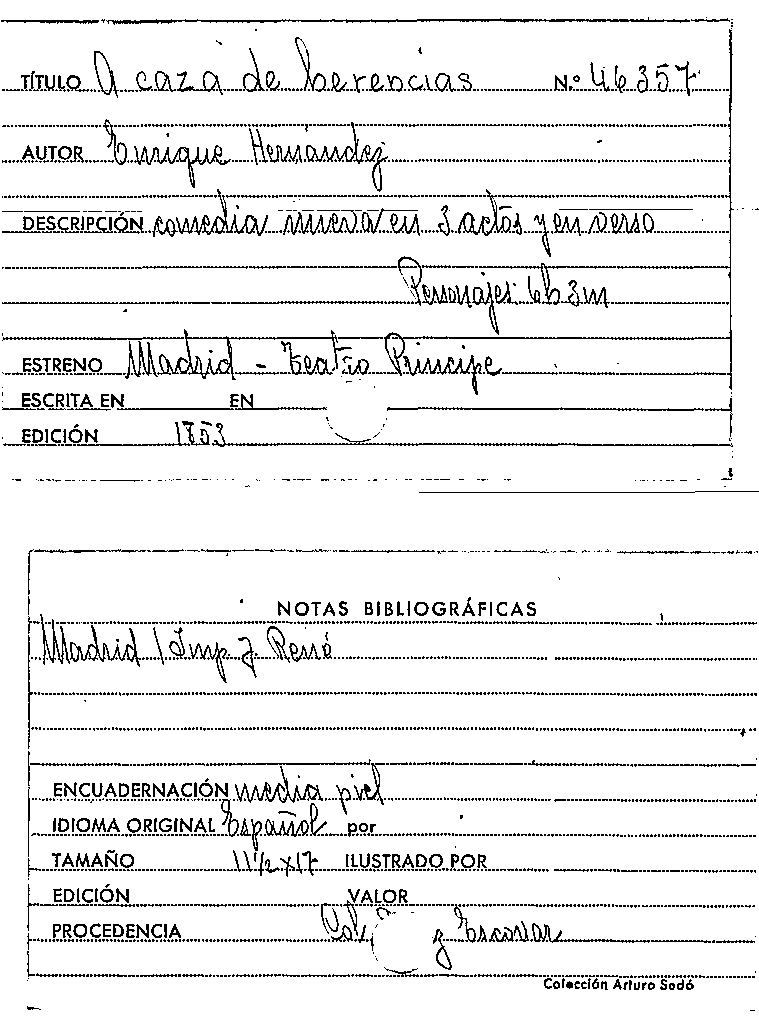 TÍTULO A caza de herencias N.º 46357
AUTOR Enrique Hernández
DESCRIPCIÓN comedia nueva en 3 actos y en verso
Personajes 6h 3m
ESTRENO Madrid - Teatro Principe
ESCRITA EN EN
EDICIÓN 1853
NOTAS BIBLIOGRÁFICAS
Madrid / Imp. J. René
ENCUADERNACIÓN media piel
IDIOMA ORIGINAL Español por
TAMAÑO 11 1/2 x 17 ILUSTRADO POR
EDICIÓN VALOR
PROCEDENCIA Col z Escovar
Colección Arturo Sedó